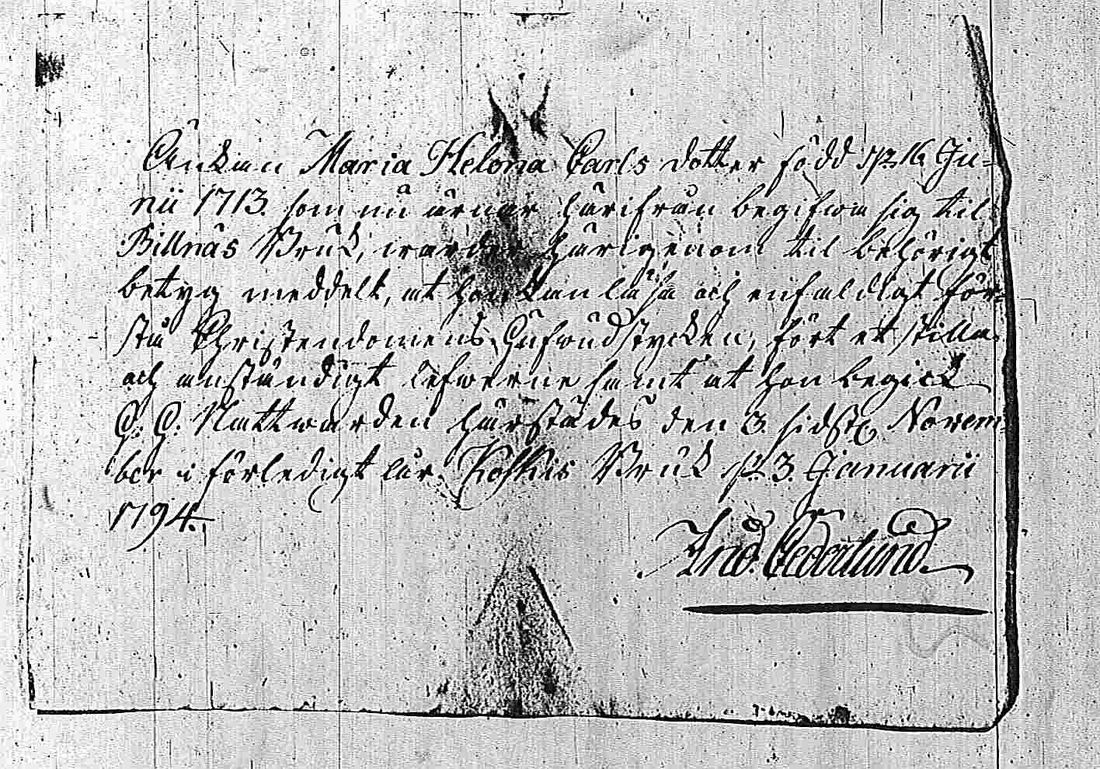 Enkan Maria Helena Carls dotter född d. 16 Ju-
nii 1713. som nu ärnar härifrån begifwa sig til
Billnäs Bruk, warder härigenom til behörigt
betyg meddelt, at hon kan läsa och enfaldigt för-
stå Christendomens Hufwudstycken, fört et stilla
och anständigt lefwerne samt at hon begick
H. H. Nattwarden härstädes den 3. sidstl. Novem-
ber i förledigt år. Koskis Bruk d. 3. Januarii
1794.
And. Cederlund.